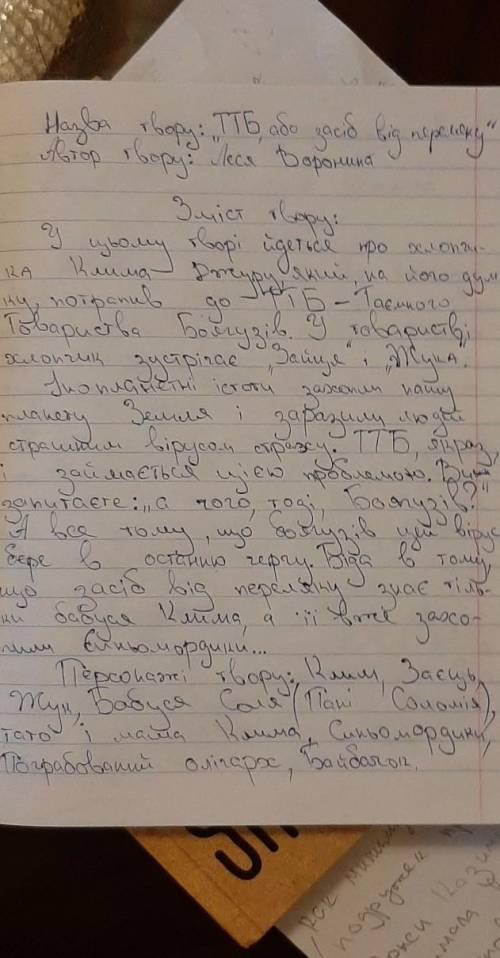 Назва твору: „ТТБ, або засіб від переляку"
Автор твору: Леся Воронина
Зміст твору:
У цьому творі йдеться про хлопчи-
ка Клима Джуру, який, на його дум
ку, потрапив до ТТБ - Таємного
Товариства Боягузів. У товаристві,
хлопчик зустрічає „Зайця" і „Жука".
Інопланетні істоти захопили нашу
планету Земля і заразили людей
страшним вірусом страху. ТТБ, якраз,
і займається цією проблемою. Ви
запитаєте: „а чого, тоді, Боягузів?"
А все тому, що боягузів цей вірус
бере в останню чергу. Біда в тому,
що засіб від переляку знає тіль-
ки бабуся Клима, а її вже захо-
пили Синьомордики...
Персонажі твору: Клим, Заєць,
Жук, Бабуся Соля (Пані Соломія),
тато і мама Клима, Синьомордики,
Пограбований олігарх, Байбачок.